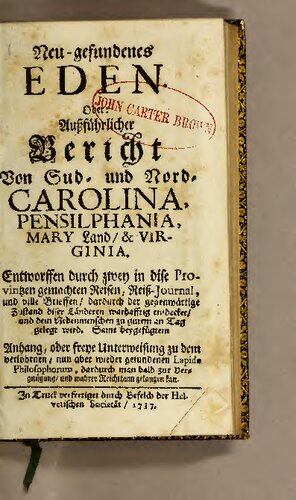 Neu-gefundenes
EDEN.
Oder
JOHN CARTER BROWN
Außführlicher
Bericht
Von Sud- und Nord-
CAROLINA,
PENSILPHANIA,
MARY Land/ & VIR-
GINIA.
Entworffen durch zwey in dise Pro-
vintzen gemachten Reisen, Reiß-Journal,
und ville Brieffen/ dardurch der gegenwärtige
Zustand diser Länderen warhafftig entdecket/
und dem Nebenmenschen zu gutem an Tag
gelegt wird. Samt beygefügtem
Anhang, oder freye Unterweisung zu dem
verlohrnen, nun aber wieder gefundenen Lapide
Philosophorum, dardurch man bald zur Ver-
gnügung/ und wahrer Reichthum gelangen kan.
In Truck verfertiget durch Befelch der Hel-
vetischen Societät/ 1737.